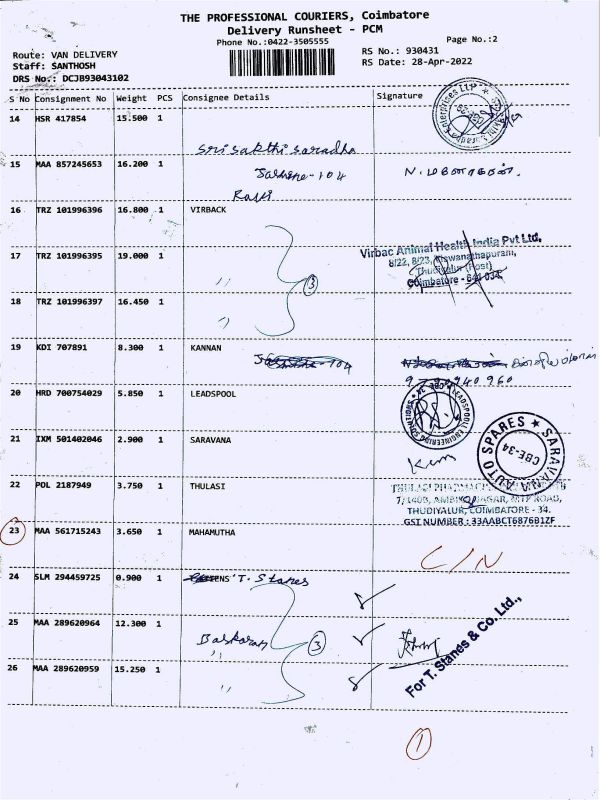 THE PROFESSIONAL COURIERS, Coimbatore
Delivery Runsheet - PCM
Phone No.:0422-3505555
Page No.:2
Route: VAN DELIVERY
RS No.: 930431
Staff: SANTHOSH
RS Date: 28-Apr-2022
DRS No.: DCJB93043102
S No Consignment No Weight PCS Consignee Details Signature
14 HSR 417854 15.500 1
Sri Sakthi Saradha
15 MAA 857245653 16.200 1
-104
Ravi
N. மனோகரன்.
16 TRZ 101996396 16.800 1 VIRBACK
17 TRZ 101996395 19.000 1 ,, 3
Virbac Animal Health India Pvt Ltd,
8/22, 8/23, Viswanathapuram,
Thudiyalur (Post)
Coimbatore - 641 034.
18 TRZ 101996397 16.450 1 ,,
19 KDI 707891 8.300 1 KANNAN
20 HRD 700754029 5.850 1 LEADSPOOL
21 IXM 501402046 2.900 1 SARAVANA
SARAVANA AUTO SPARES
CBE-34
22 PDL 2187949 3.750 1 THULASI
THULASI PHARMACI
7/140B, AMBIKA NAGAR, NTP ROAD,
THUDIYALUR, COIMBATORE - 34.
GST NUMBER : 33AABCT6876B1ZF
23 MAA 561715243 3.650 1 MAHAMUTHA
C/N
24 SLM 294459725 0.900 1 T. Stanes
25 MAA 289620964 12.300 1 Baskaran 3
,,
For T. Stanes & Co. Ltd.,
26 MAA 289620959 15.250 1 ,,
1